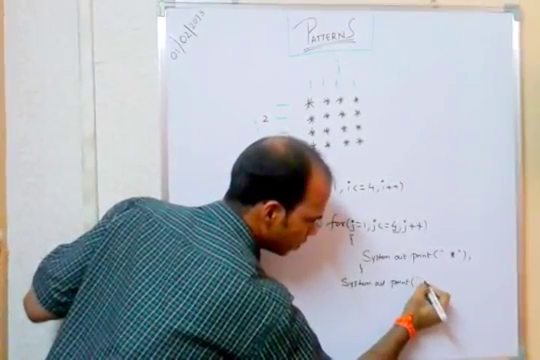 01/02/2023
PATTERNS
j
1 1 1 1
* * * *
2
* * * *
* * * *
* * * *
1, i<=4, i++)
for(j=1, j<=4, j++)
{
System out print(" *"),
}
System out print(